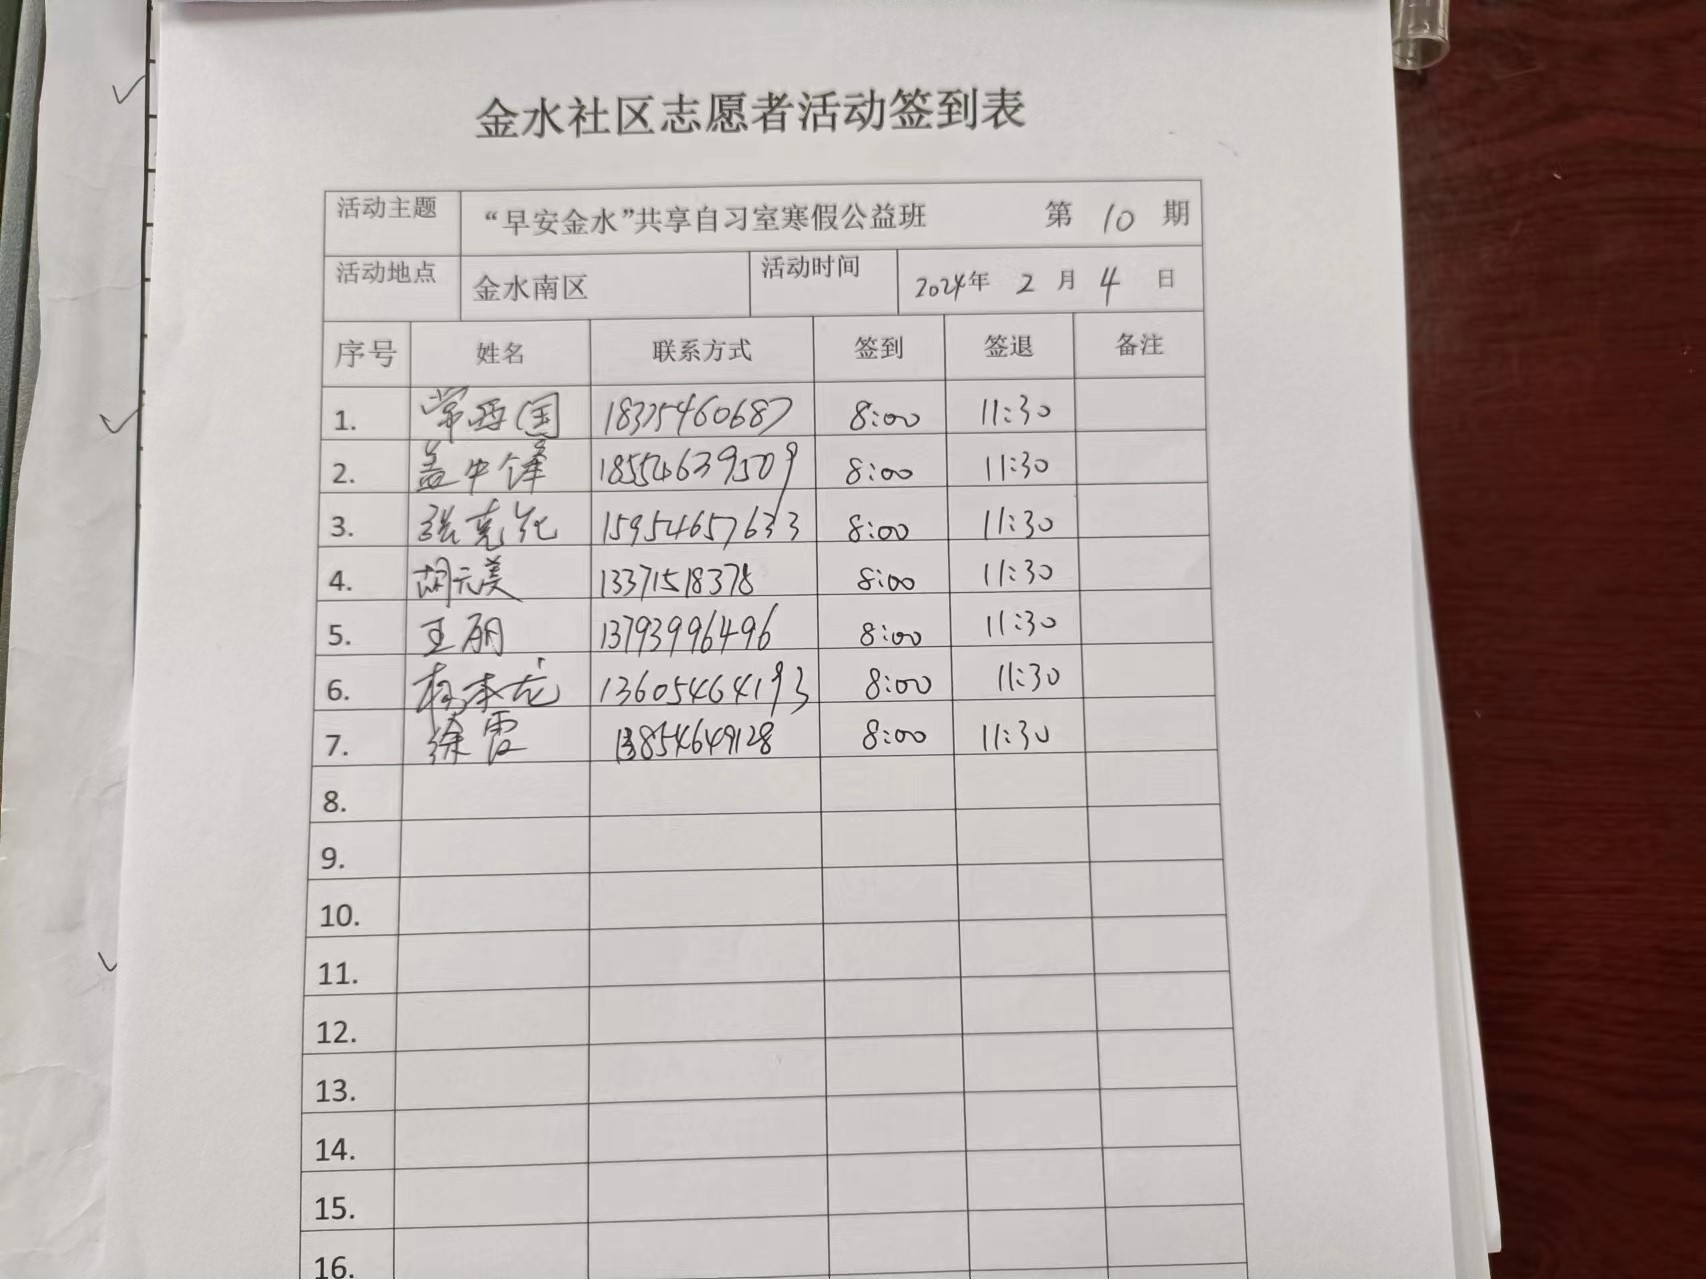 金水社区志愿者活动签到表
活动主题 “早安金水”共享自习室寒假公益班 第 10 期
活动地点 金水南区 活动时间 2024年 2 月 4 日
序号 姓名 联系方式 签到 签退 备注
1. 常西国 18375460687 8:00 11:30
2. 盖中锋 18554639509 8:00 11:30
3. 张克 15954657633 8:00 11:30
4. 胡元美 13371518378 8:00 11:30
5. 王丽 13793996496 8:00 11:30
6. 杨本龙 13605464193 8:00 11:30
7. 徐霞 13854649128 8:00 11:30
8.
9.
10.
11.
12.
13.
14.
15.
16.